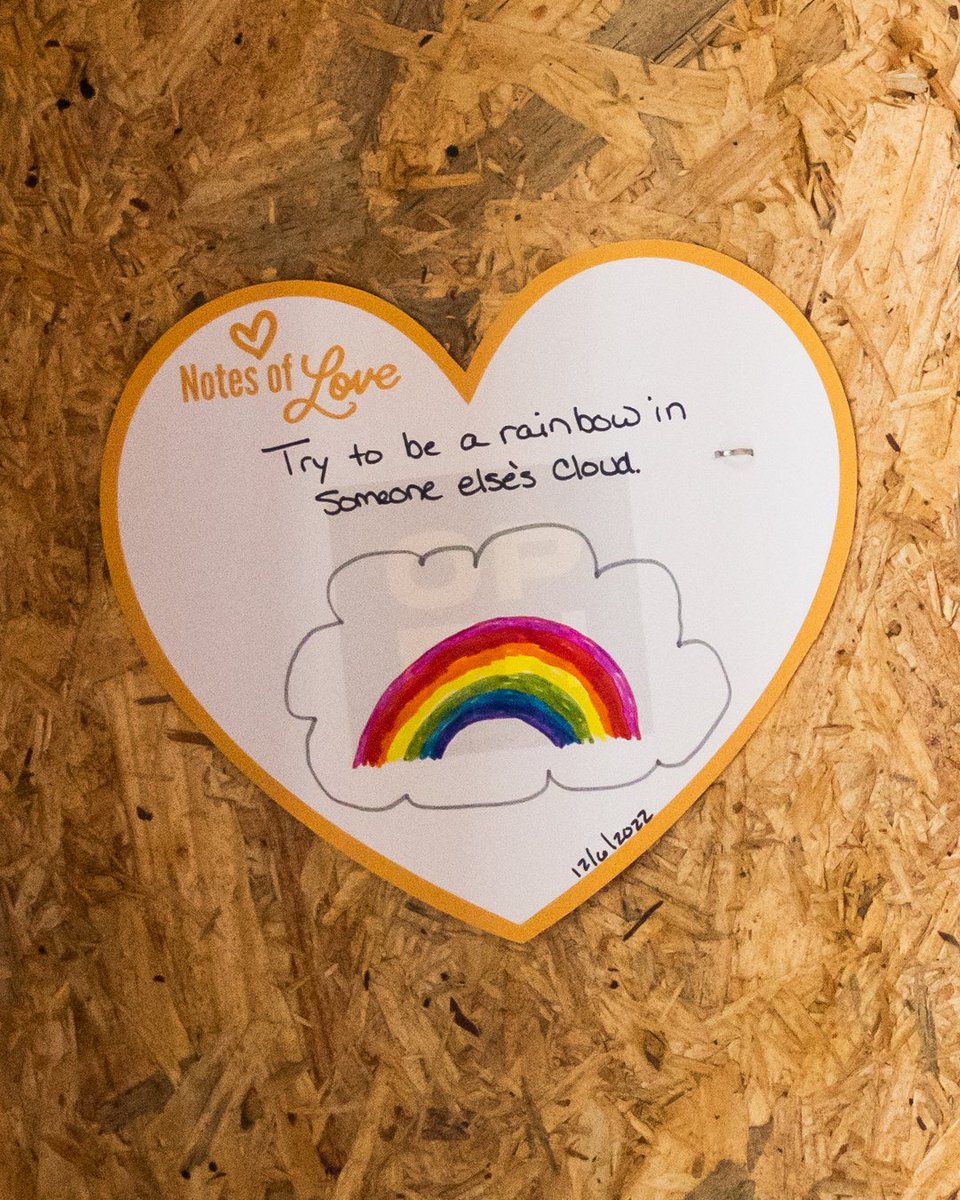 Notes of Love
Try to be a rainbow in
Someone else's cloud.
12/6/2022